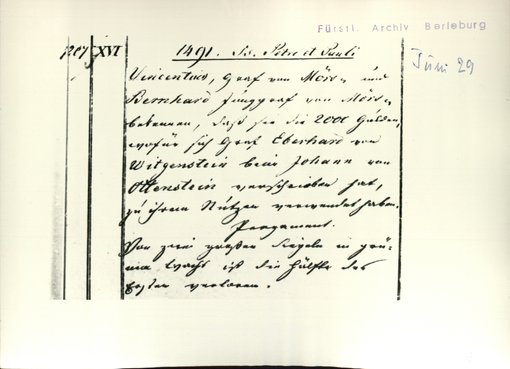 Fürstl. Archiv Berleburg
Juni 29
207 XVI 1491. Ss. Petri et Pauli
Vincentius, Graf von Mörs, und
Bernhard Junggraf von Mörs,
bekennen, daß sie die 2000 Gulden,
wofür sich Graf Eberhard von
Witgenstein beim Johann von
Ottenstein verschrieben hat,
zu ihrem Nutzen verwendet haben.
Pergament.
Von zwei großen Siegeln in grü-
nem Wachs ist die Hälfte des
Ersten verloren.